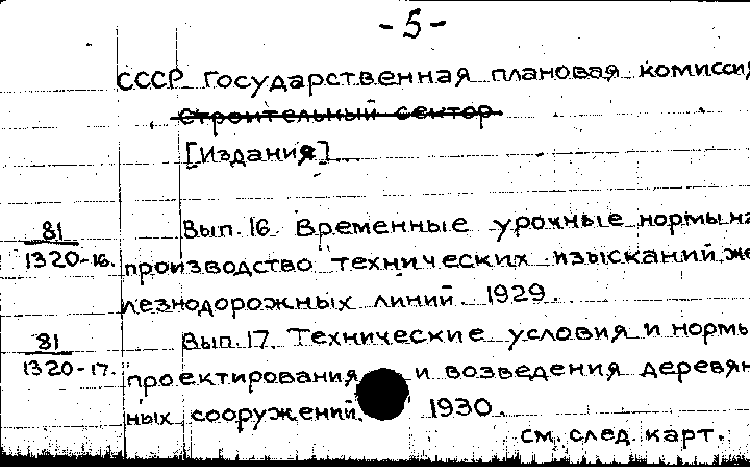 -5-
СССР Государственная плановая комиссия
Строительный сектор
[Издания]
81 Вып. 16. Временные урочные нормы на
1320-16. производство технических изысканий же
лезнодорожных линий. 1929.
81 Вып. 17. Технические условия и нормы
1320-17. проектирования и возведения деревян
ных сооружений. 1930.
см. след. карт.